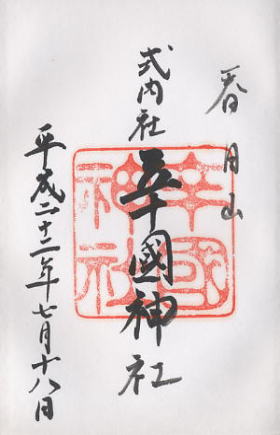 春日山
式内社
辛國神社
辛國神社
平成二十二年七月十八日